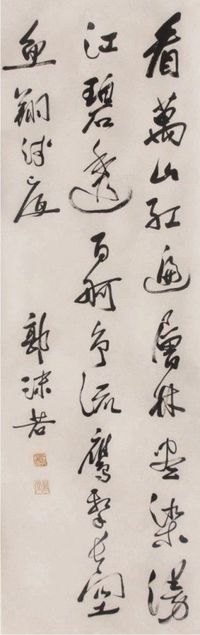 看萬山紅遍層林盡染漫
江碧透百舸争流鷹擊長空
魚翔淺底
郭沫若